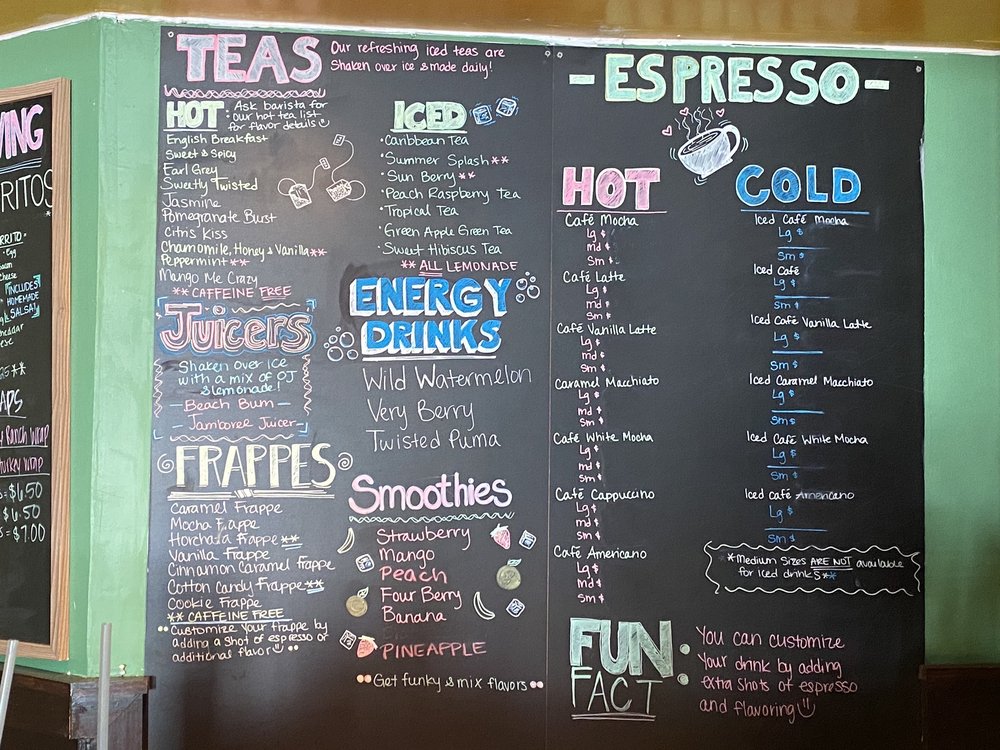 TEAS
Our refreshing iced teas are
Shaken over ice & made daily!
HOT
Ask barista for
our hot tea list
for flavor details
English Breakfast
Sweet & Spicy
Earl Grey
Sweetly Twisted
Jasmine
Pomegranate Burst
Citris Kiss
Chamomile, Honey & Vanilla**
Peppermint**
Mango Me Crazy
** CAFFEINE FREE
ICED
•Caribbean Tea
•Summer Splash**
•Sun Berry**
•Peach Raspberry Tea
•Tropical Tea
•Green Apple Green Tea
•Sweet Hibiscus Tea
** ALL LEMONADE
Juicers
Shaken over ice
with a mix of OJ
& lemonade!
—Beach Bum—
—Jamboree Juicer—
ENERGY
DRINKS
Wild Watermelon
Very Berry
Twisted Puma
FRAPPES
Caramel Frappe
Mocha Frappe
Horchata Frappe**
Vanilla Frappe
Cinnamon Caramel Frappe
Cotton Candy Frappe**
Cookie Frappe
** CAFFEINE FREE
Customize your frappe by
adding a shot of espresso or
additional flavor
Smoothies
Strawberry
Mango
Peach
Four Berry
Banana
PINEAPPLE
Get funky & mix flavors
-ESPRESSO-
HOT
Café Mocha
Lg $
md $
Sm $
Café Latte
Lg $
md $
Sm $
Café Vanilla Latte
Lg $
md $
Sm $
Caramel Macchiato
Lg $
md $
Sm $
Café White Mocha
Lg $
md $
Sm $
Café Cappuccino
Lg $
md $
Sm $
Café Americano
Lg $
md $
Sm $
COLD
Iced Café Mocha
Lg $
Sm $
Iced Café
Lg $
Sm $
Iced Café Vanilla Latte
Lg $
Sm $
Iced Caramel Macchiato
Lg $
Sm $
Iced Café White Mocha
Lg $
Sm $
Iced Café Americano
Lg $
Sm $
**Medium Sizes ARE NOT available
for iced drinks**
FUN
FACT
You can customize
Your drink by adding
extra shots of espresso
and flavoring
VING
RITOS
RRITO•
•Egg
INCLUDES
HOMEMADE
SALSA!
APS
Ranch Wrap
Wrap
= $6.50
$6.50
= $7.00